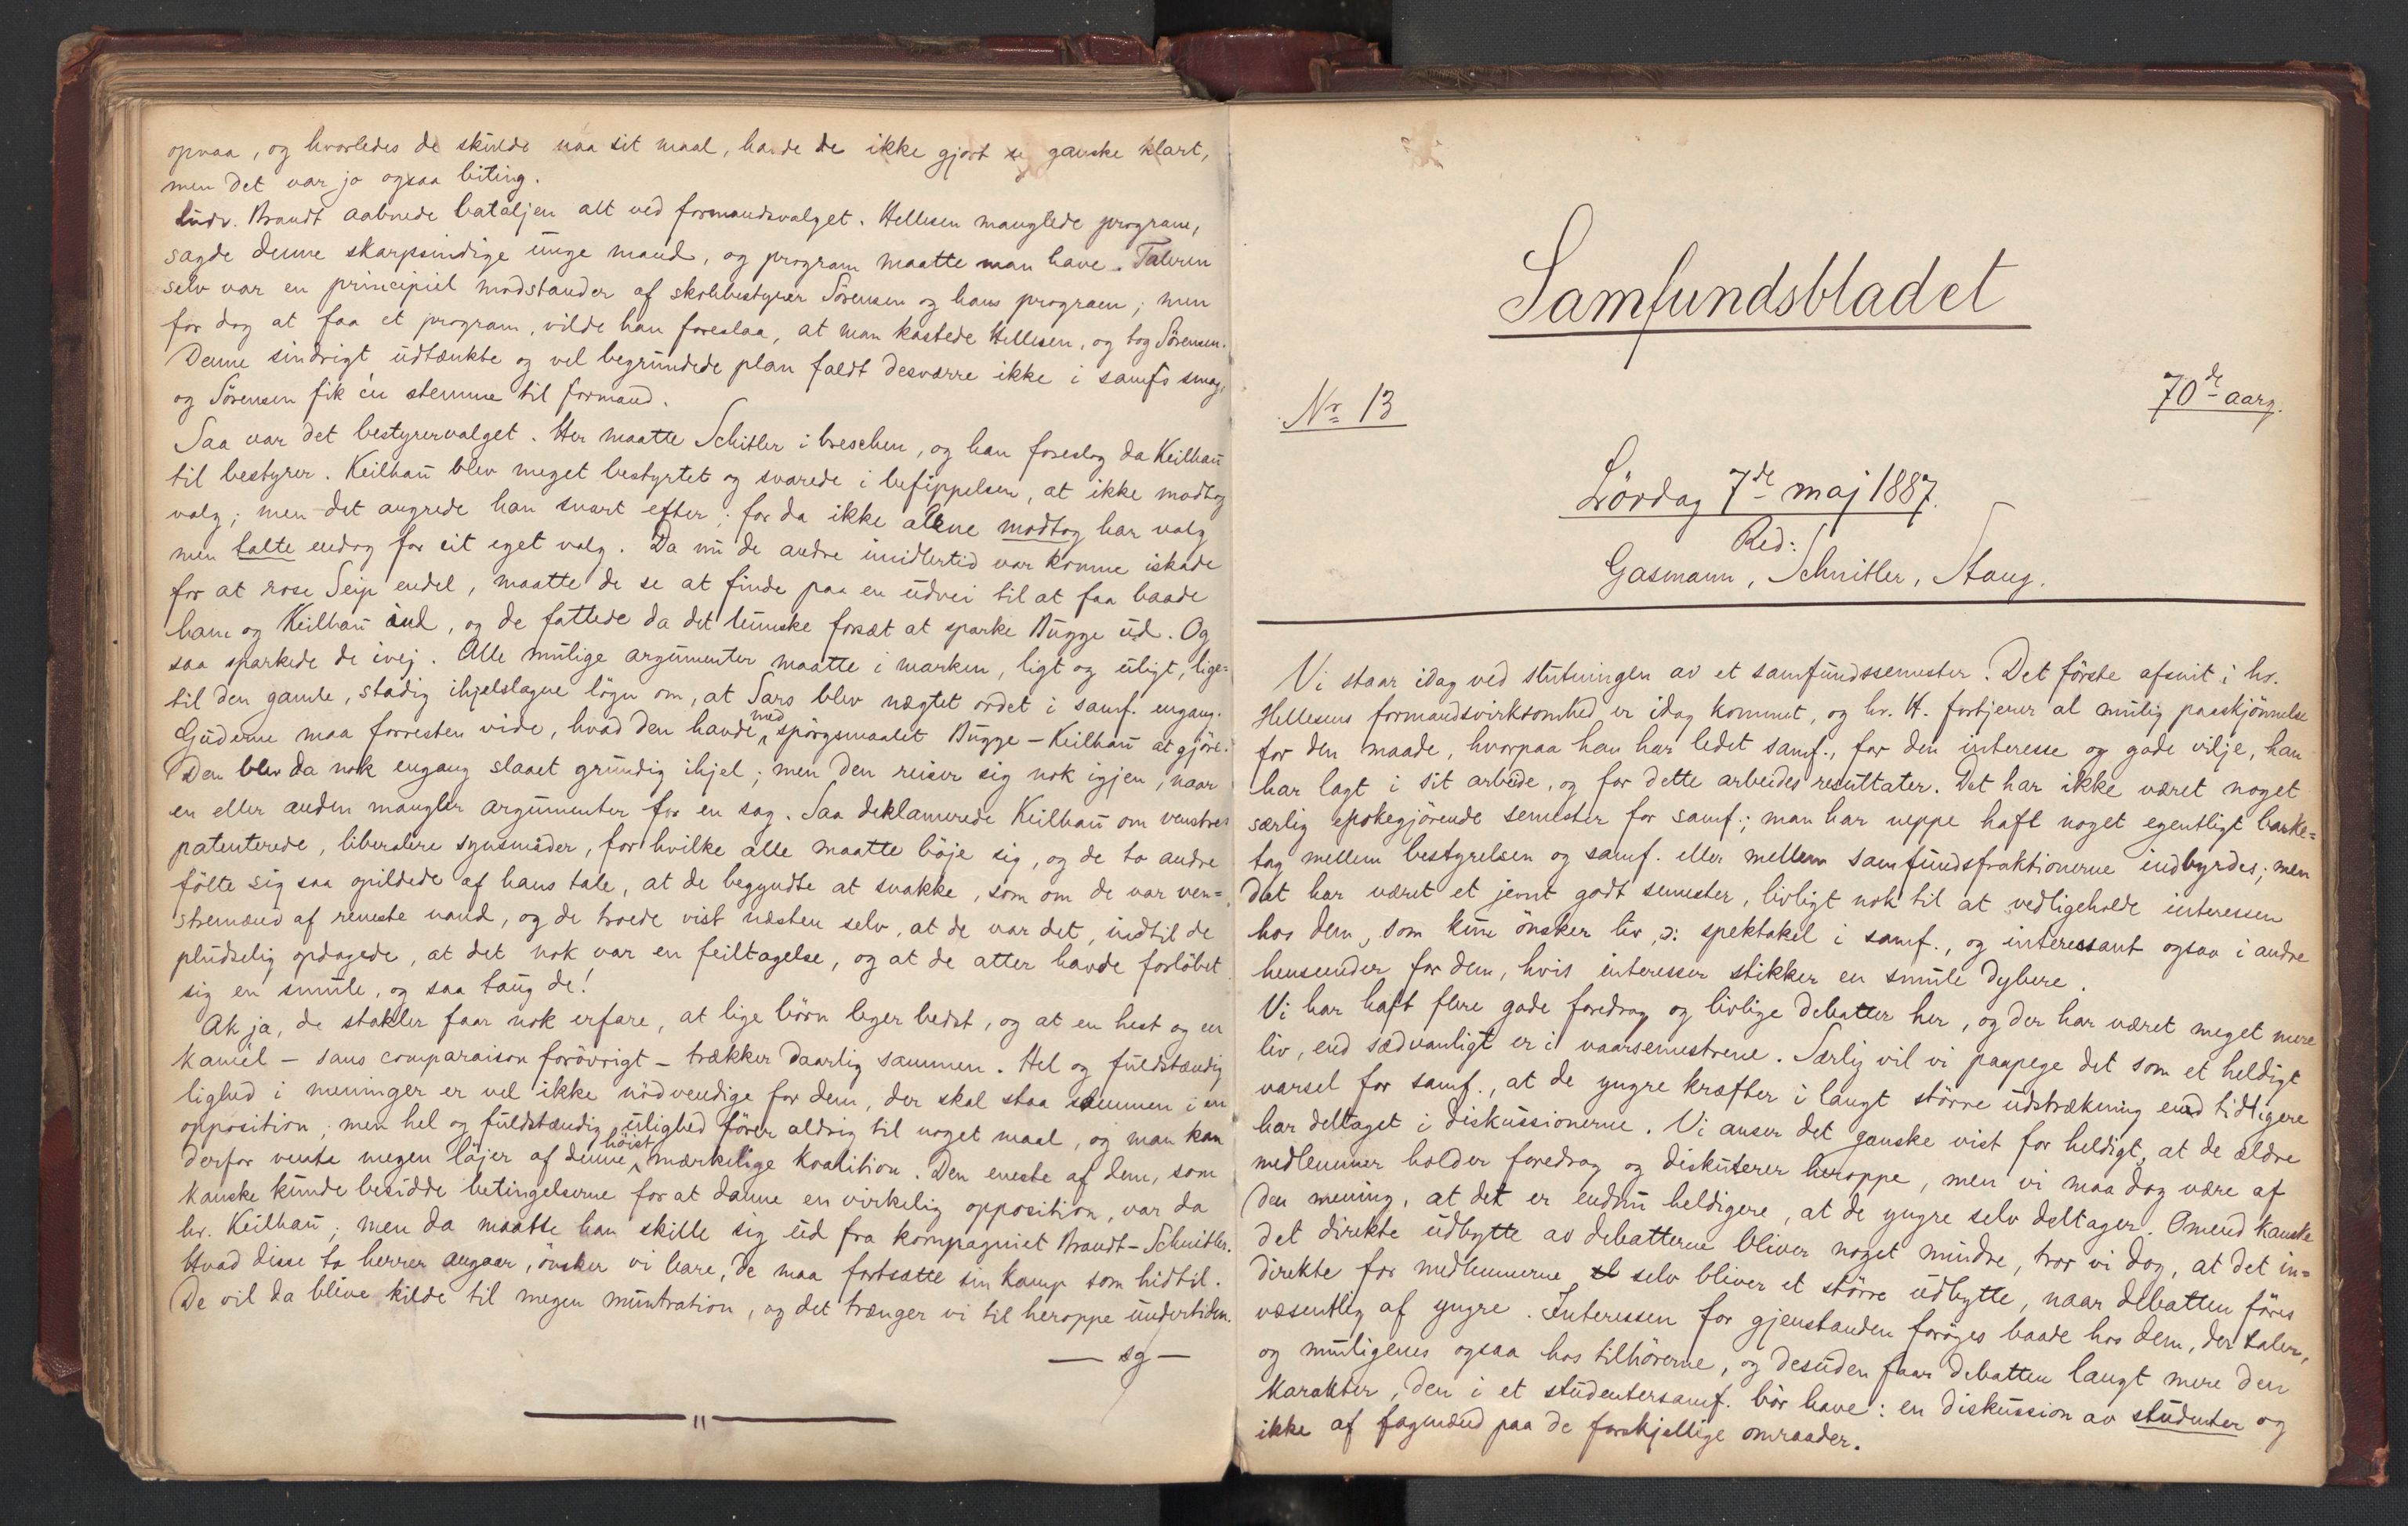 opnaa, og hvorledes de skulde naa sit maal, havde de ikke gjort sig ganske klart,
men det var jo ogsaa biting.
Ludv. Brandt aabnede bataljen alt ved formandsvalget. Hellesen manglede program,
sagde denne skarpsindige unge mand, og program maatte man have. Taleren
selv var en principiel modstander af skolebestyrer Sörensen og hans program; men
for dog at faa et program, vilde han foreslaa, at man kastede Hellesen, og tog Sörensen.
Denne sindrigt udtænkte og vel begrundede plan faldt desværre ikke i samf's smag,
og Sörensen fik én stemme til formand.
Saa var det bestyrervalget. Her maatte Schitler i breschen, og han foreslog da Keilhau
til bestyrer. Keilhau blev meget bestyrtet og svarede i befippelsen, at ikke modtog
valg; men det angrede han snart efter; for da ikke alene modtog har valg
men talte endog for sit eget valg. Da nu de andre imidlertid var komne iskade
for at rose Seip endel, maatte de se at finde paa en udvei til at faa baade
ham og Keilhau ind, og de fattede da det lumske forsæt at sparke Bugge ud. Og
saa sparkede de ivej. Alle mulige argumenter maatte i marken, ligt og uligt, lige=
til den gamle, stadig ihjelslagne lögn om, at Sars blev nægtet ordet i samf. engang.
Guderne maa forresten vide, hvad den havde med spörgsmaalet Bugge - Keilhau at gjöre.
Den blev da nok engang slaaet grundig ihjel; men den reiser sig nok igjen, naar
en eller anden mangler argumenter for en sag. Saa deklamerede Keilhau om venstres
patenterede, liberalere synsmåder, for hvilke alle maatte böje sig, og de to andre
fölte sig saa opildede af hans tale, at de begyndte at snakke, som om de var ven=
stremænd af reneste vand, og de troede vist næsten selv, at de var det, indtil de
pludselig opdagede, at det nok var en feiltagelse, og at de atter havde forlöbet
sig en smule, og saa taug de!
Ak ja, de stakler faar nok erfare, at lige börn leger bedst, og at en hest og en
kamel - sans comparaison forövrigt - trækker daarlig sammen. Hel og fuldstændig
lighed i meninger er vel ikke nödvendige for dem, der skal staa sammen i en
opposition; men hel og fuldstændig ulighed förer aldrig til noget maal, og man kan
derfor vente megen löjer af denne höist mærkelige koalition. Den eneste af dem, som
kanske kunde besidde betingelserne for at danne en virkelig opposition, var da
hr. Keilhau; men da maatte han skille sig ud fra kompagniet Brandt - Schnitler.
Hvad disse to herrer angaar, önsker vi bare, de maa fortsætte sin kamp som hidtil.
De vil da blive kilde til megen muntration, og det trænger vi til heroppe undertiden.
— sg —
Samfundsbladet
Nr 13
70de aarg.
Lördag 7de maj 1887.
Red:
Gasmann, Schnitler, Stang.
Vi staar idag ved slutningen av et samfundssemester. Det förste afsnit i hr.
Hellesens formandsvirksomhed er idag kommet, og hr. H. fortjener al mulig paaskjönnelse
for den maade, hvorpaa han har ledet samf., for den interesse og gode vilje, han
har lagt i sit arbeide, og for dette arbeides resultater. Det har ikke været noget
særlig epokegjörende semester for samf.; man har neppe haft noget egentligt baske=
tag mellem bestyrelsen og samf. eller mellem samfundsfraktionerne indbyrdes; men
det har været et jevnt godt semester, livligt nok til at vedligeholde interessen
hos dem, som kun önsker liv, ɔ: spektakel i samf., og interessant ogsaa i andre
henseender for dem, hvis interesser stikker en smule dybere.
Vi har haft flere gode foredrag og livlige debatter her, og der har været meget mere
liv, end sædvanligt er i vaarsemestrene. Særlig vil vi paapege det som et heldigt
varsel for samf., at de yngre kræfter i langt större udstrækning end tidligere
har deltaget i diskussionerne. Vi anser det ganske vist for heldigt, at de ældre
medlemmer holder foredrag og diskuterer heroppe, men vi maa dog være af
den mening, at det er endnu heldigere, at de yngre selv deltager. Omend kanske
det direkte udbytte av debatterne bliver noget mindre, tror vi dog, at det in=
direkte for medlemmerne selv bliver et större udbytte, naar debatten föres
væsentlig af yngre. Interessen for gjenstanden foröges baade hos dem, der taler,
og muligens ogsaa hos tilhörerne, og desuden faar debatten langt mere den
karakter, den i et studentersamf. bör have: en diskussion av studenter og
ikke af fagmænd paa de forskjellige omraader.